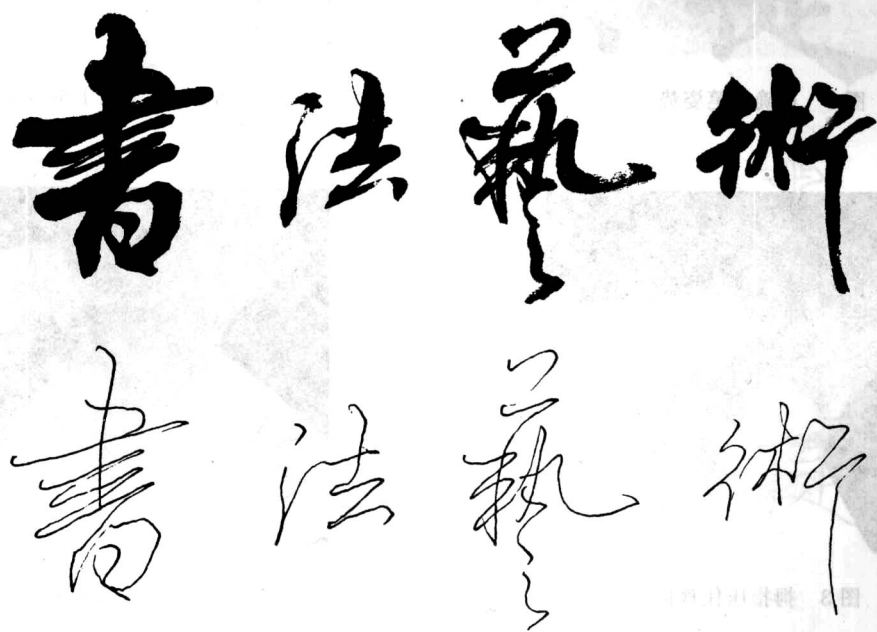 書法藝術
書法藝術